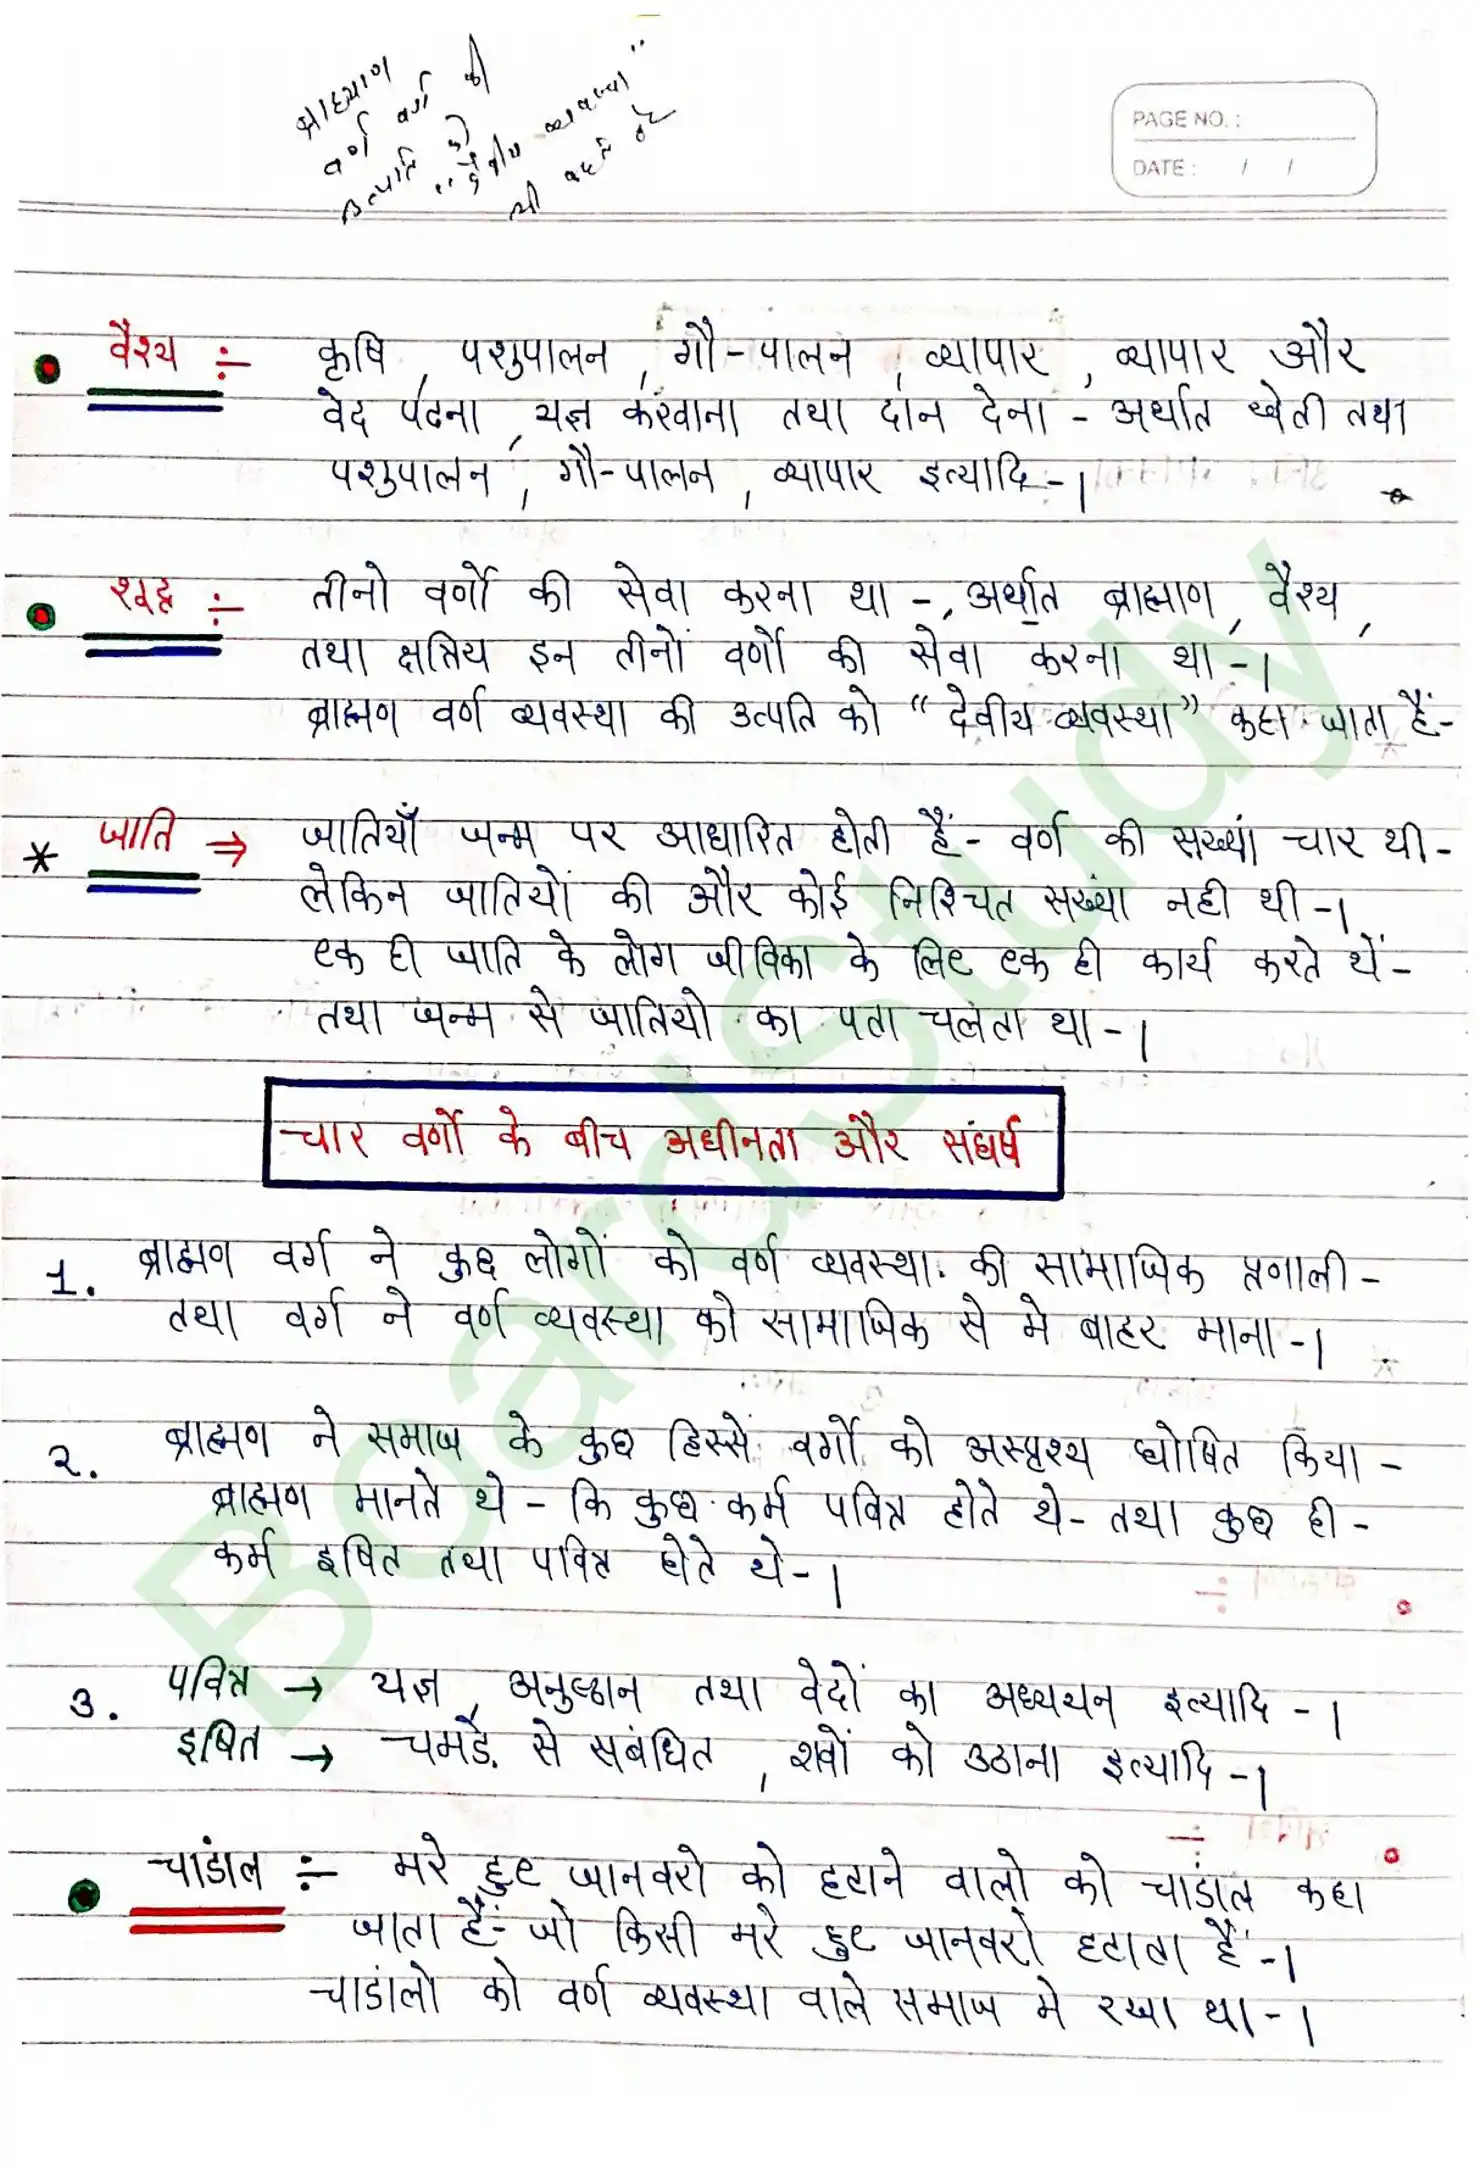 ब्राह्मण
वर्ण वर्ग की
उत्पत्ति को
"देवीय व्यवस्था"
भी कहते है
PAGE NO. :
DATE : / /
वैश्य ÷ कृषि, पशुपालन, गौ-पालन, व्यापार, व्यापार और
वेद पढना, यज्ञ करवाना तथा दान देना - अर्थात खेती तथा
पशुपालन, गौ-पालन, व्यापार इत्यादि -।
शूद्र ÷ तीनो वर्णो की सेवा करना था -, अर्थात ब्राह्माण, वैश्य,
तथा क्षत्रिय इन तीनों वर्णो की सेवा करना था -।
ब्राह्मण वर्ण व्यवस्था की उत्पति को "देवीय व्यवस्था" कहा जाता हैं-
* जाति ⇒ जातियाँ जन्म पर आधारित होती हैं- वर्ण की सख्यां चार थी -
लेकिन जातियों की और कोई निश्चित सख्यां नही थी -।
एक ही जाति के लोग जीविका के लिए एक ही कार्य करते थें -
तथा जन्म से जातियो का पता चलता था -।
चार वर्णो के बीच अधीनता और संघर्ष
1. ब्राह्मण वर्ग ने कुछ लोगों को वर्ण व्यवस्था. की सामाजिक प्रणाली -
तथा वर्ग ने वर्ण व्यवस्था को सामाजिक से मे बाहर माना -।
2. ब्राह्मण ने समाज के कुछ हिस्सें वर्गो को अस्पृश्य घोषित किया -
ब्राह्मण मानते थे - कि कुछ कर्म पवित्र होते थे- तथा कुछ ही -
कर्म इषित तथा पवित्र होते थे -।
3. पवित्र → यज्ञ, अनुष्ठान तथा वेदों का अध्ययन इत्यादि -।
इषित → चमडें से सबंधित, शवों को उठाना इत्यादि -।
चाडांल ÷ मरे हुए जानवरो को हटाने वालो को चाडांल कहा
जाता हैं- जो किसी मरे हुए जानवरो हटाता हैं -।
चाडांलो को वर्ण व्यवस्था वाले समाज मे रखा था -।
BoardStudy